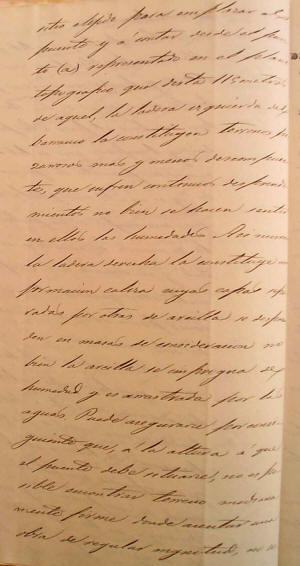 sitio elejido para emplazar el
puente y á contar desde el pun-
to (a) representado en el plano
topografico que dista 115 metros
de aquel, la ladera izquierda del
barranco la constituyen terrenos pi-
zarrosos mas y menos descompues-
tos, que sufren continuos desprendi-
mientos no bien se hacen sentir
en ellos las humedades. Asi mismo
la ladera derecha la constituye una
formacion caliza cuyas capas sepa-
radas por otras de arcilla se despren-
den en masas de consideracion no
bien la arcilla se impregna de
humedad y es arrastrada por las
aguas. Puede asegurarse por consi-
guiente que, á la altura á que
el puente debe situarse, no es po-
sible encontrar terreno mediana-
mente firme donde asentar una
obra de regular magnitud,